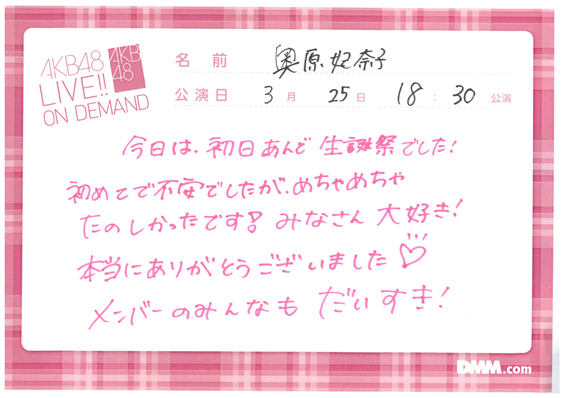 AKB48
LIVE!!
ON DEMAND
AKB
48
名前 奥原妃奈子
公演日 3月 25日 18:30 公演
今日は、初日あんど生誕祭でした!
初めてで不安でしたが、めちゃめちゃ
たのしかったです!? みなさん大好き!
本当にありがとうございました♡
メンバーのみんなも だいすき!
DMM.com